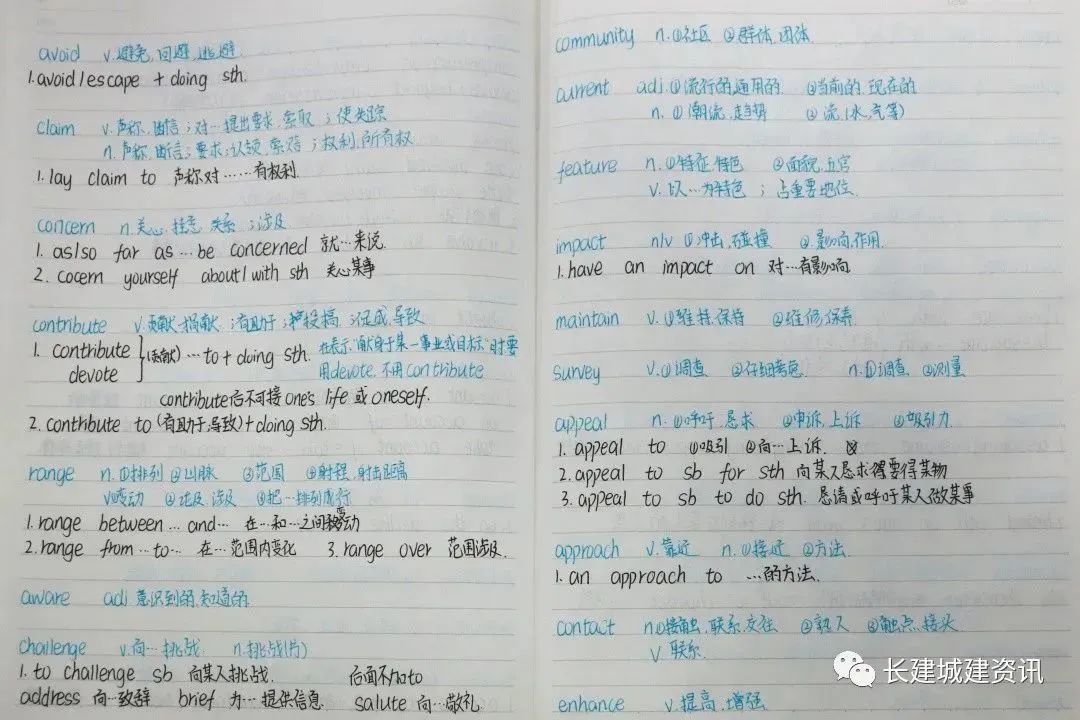 avoid v.避免,回避,逃避
1.avoid/escape + doing sth.
claim v.声称,断言;对…提出要求,索取;使失踪
n.声称,断言;要求;认领,索赔;权利,所有权
1.lay claim to 声称对……有权利.
concern n.关心,挂念,关系;涉及
1. as/so far as … be concerned 就…来说.
2. cocern yourself about/with sth 关心某事
contribute v.贡献,捐献;有助于;投稿;促成,导致
1. contribute
devote
(贡献) … to + doing sth. 在表示"献身于某一事业或目标"时要
用devote.不用contribute
contribute后不可接one's life 或 oneself.
2. contribute to (有助于,导致)+doing sth.
range n.①排列 ②山脉 ③范围 ④射程,射击距离
v.①变动 ②论及,涉及 ③把…排列成行
1.range between … and… 在…和…之间变动
2.range from … to… 在…范围内变化 3.range over 范围涉及.
aware adj 意识到的,知道的
challenge v.向…挑战 n.挑战(书)
1. to challenge sb 向某人挑战. 后面不加to
address 向…致辞 brief 为…提供信息 salute 向…敬礼
community n.①社区 ②群体,团体
current adj.①流行的,通用的 ②当前的,现在的
n.①潮流,趋势 ②流(水,气等)
feature n.①特征,特色 ②面貌,五官
v.以…为特色;占重要地位
impact n/v ①冲击,碰撞 ②影响,作用
1.have an impact on 对…有影响
maintain v.①维持,保持 ②维修,保养
survey v.①调查 ②仔细考虑 n.①调查 ②测量
appeal n.①呼吁,恳求 ②申诉,上诉 ③吸引力
1. appeal to ①吸引 ②向…上诉.
2.appeal to sb for sth 向某人恳求得要得某物
3. appeal to sb to do sth. 恳请或呼吁某人做某事
approach v.靠近 n.①接近 ②方法
1. an approach to …的方法.
contact n.①接触,联系,交往 ②熟人 ③触点,接头
v.联系
enhance v.提高,增强
长建城建资讯